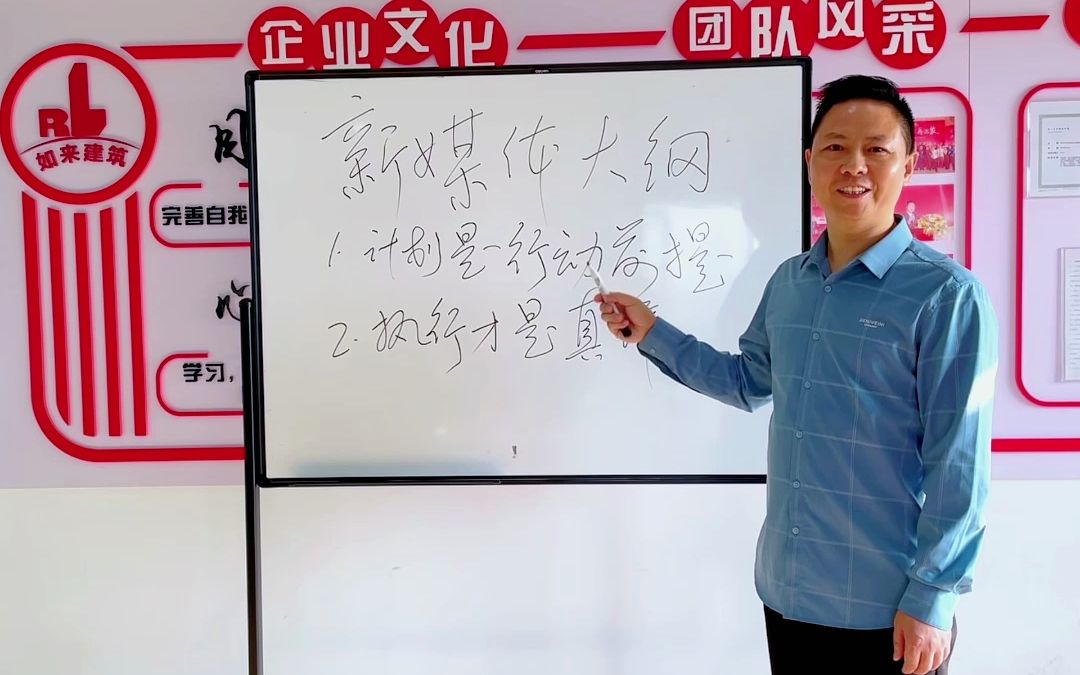 企业文化
团队风采
RL
如来建筑
完善自我
学习，
新媒体大纲
1. 计划是一行动前提
2. 执行才是真